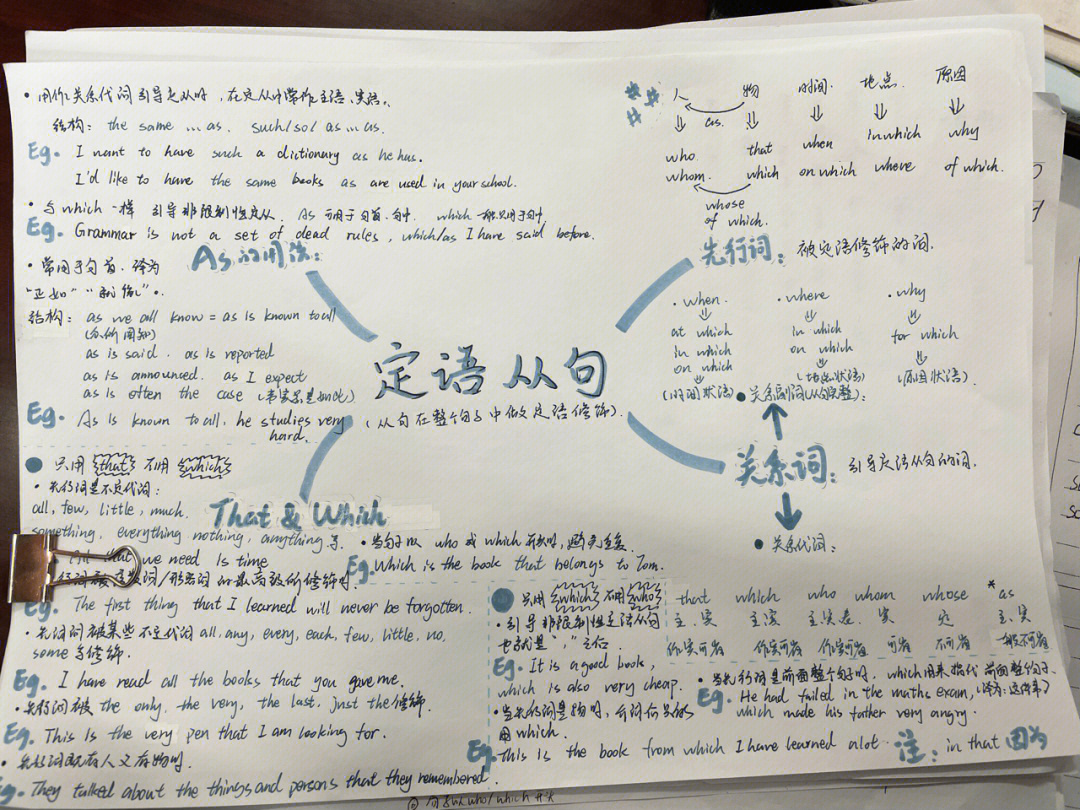 • 用作关系代词引导定从时，在定从中常作主语、宾语。
结构：the same ... as. such/so/ as ... as.
Eg. I want to have such a dictionary as he has.
I'd like to have the same books as are used in your school.
• 与which一样 引导非限制性定从. As 可用于句首、句中. which一般只用于句中.
Eg. Grammar is not a set of dead rules, which/as I have said before.
As 的用法：
• 常用于句首. 译为
"正如" "就像"。
结构：as we all know = as is known to all
(众所周知)
as is said. as is reported
as is announced. as I expect
as is often the case (事实总是如此)
Eg. As is known to all, he studies very
hard.
定语从句
(从句在整个句子中做定语修饰).
人 物 时间. 地点. 原因
as.
who that when in which why
whom. which on which where of which.
whose
of which.
先行词：被定语修饰的词.
• when. • where • why
at which in which for which
in which on which
on which
(时间状语) (地点状语) (原因状语).
• 关系副词(从句完整)：
关系词：引导定语从句的词.
• 关系代词：
that which who whom whose *as
主.宾 主宾 主宾表 宾 定 主.宾
作宾可省 作宾可省 作宾可省 可省 不可省 一般不可省
That & Which
只用that 不用which
• 先行词是不定代词：
all, few, little, much.
something, everything nothing, anything等.
that we need is time
形容词的最高级的修饰时.
Eg. The first thing that I learned will never be forgotten.
• 先行词被某些不定代词all, any, every, each, few, little, no,
some等修饰.
Eg. I have read all the books that you gave me.
• 先行词被 the only. the very, the last, just the修饰.
Eg. This is the very pen that I am looking for.
• 先行词既有人又有物时.
Eg. They talked about the things and persons that they remembered.
• 当句子以 who 或 which 开头时，避免重复
Eg. Which is the book that belongs to Tom.
只用which 不用who
• 引导非限制性定语从句
也就是"，"之后
Eg. It is a good book,
which is also very cheap.
• 当先行词是物时，介词后只能
用which.
Eg. This is the book from which I have learned a lot.
• 当先行词是前面整个句子时. which用来指代前面整个句子.
(译为：这件事)
Eg. He had failed in the maths exam,
which made his father very angry.
注：in that 因为